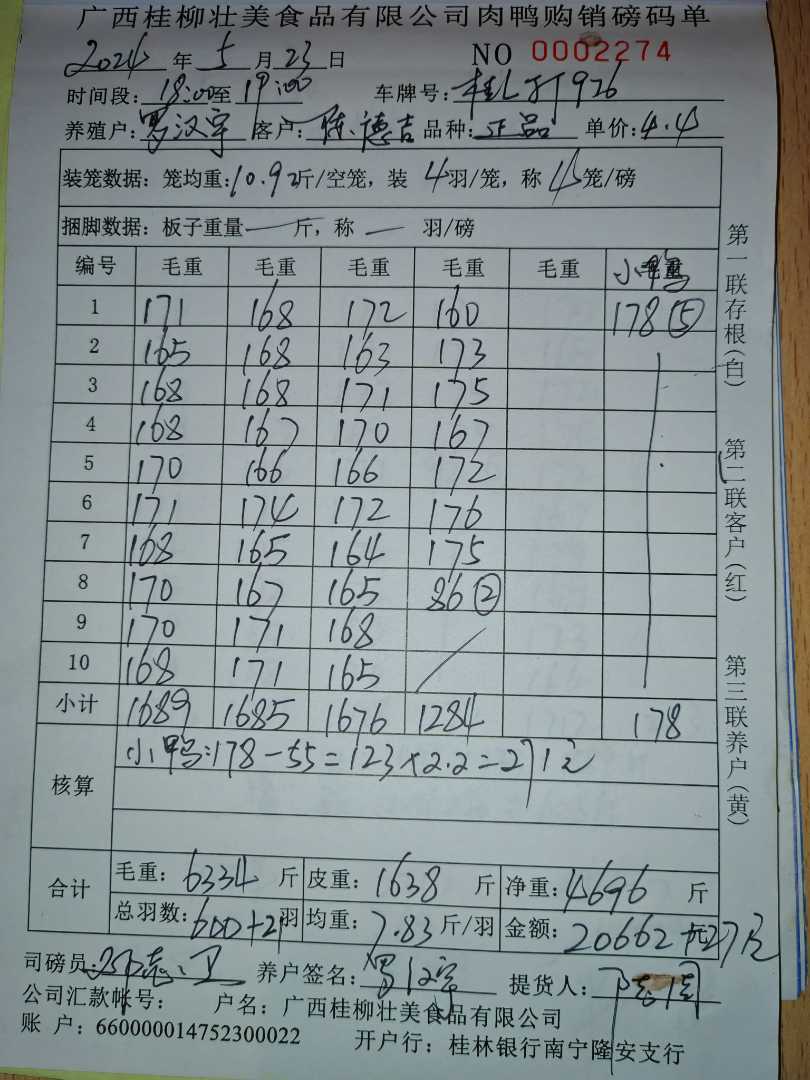 广西桂柳壮美食品有限公司肉鸭购销磅码单
2024年5月23日 NO 0002274
时间段：18:00至19:00 车牌号：
养殖户：罗汉宇 客户：陈德吉 品种：正品 单价：4.4
装笼数据：笼均重：10.92斤/空笼，装4羽/笼，称5笼/磅
捆脚数据：板子重量—斤，称—羽/磅
编号 毛重 毛重 毛重 毛重 毛重 小鸭
1 171 168 172 160 178⑤
2 165 168 163 173
3 168 168 171 175
4 168 167 170 167
5 170 166 166 172
6 171 174 172 176
7 168 165 164 175
8 170 167 165 86②
9 170 171 168
10 168 171 165
小计 1689 1685 1676 1284 178
核算 小鸭:178-55=123×2.2=271元
合计 毛重：6334斤 皮重：1638斤 净重：4696斤
总羽数：600+2羽 均重：7.83斤/羽 金额：20662
司磅员： 养户签名：罗汉宇 提货人：
公司汇款帐号： 户名：广西桂柳壮美食品有限公司
账 户：660000014752300022 开户行：桂林银行南宁隆安支行
第一联存根（白）
第二联客户（红）
第三联养户（黄）